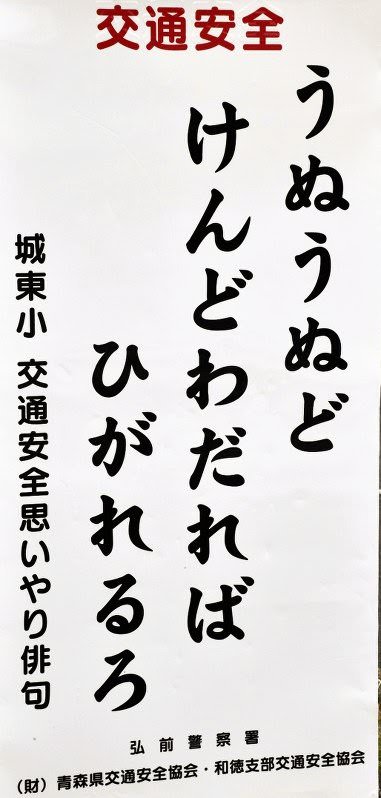 交通安全
うぬうぬど
けんどわだれば
ひがれるろ
城東小 交通安全思いやり俳句
弘前警察署
（財）青森県交通安全協会・和徳支部交通安全協会